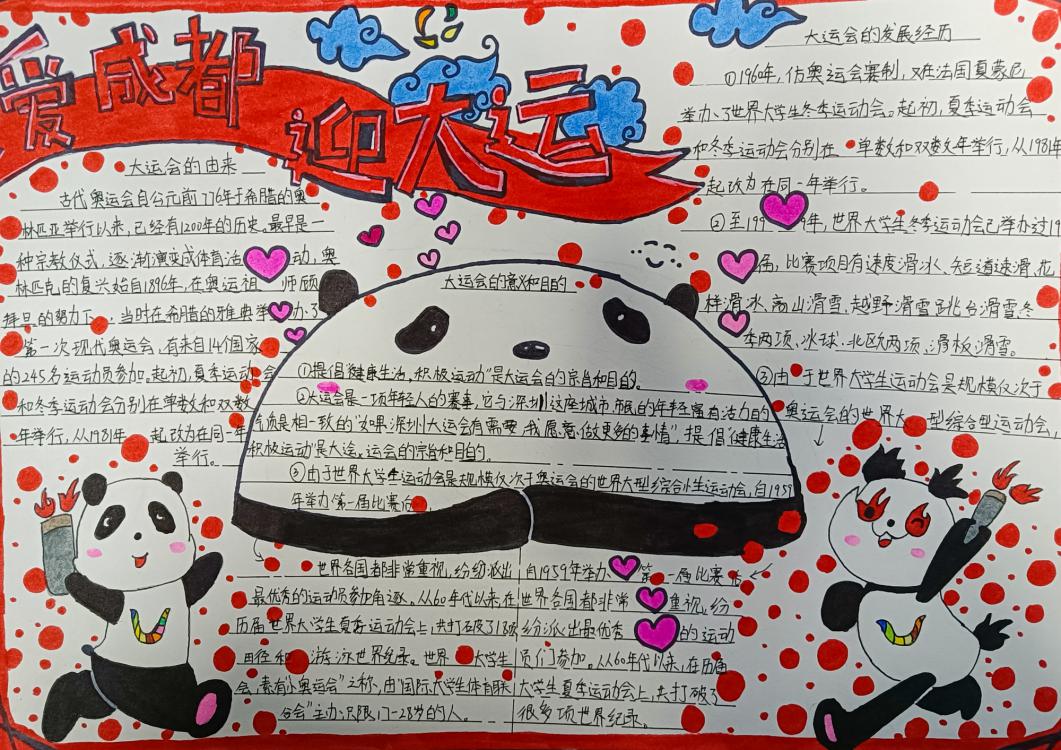 爱成都
迎大运
大运会的由来
古代奥运会自公元前776年于希腊的奥
林匹亚举行以来,已经有1200年的历史。最早是一
种宗教仪式,逐渐演变成体育活动,奥
林匹克的复兴始自1896年,在奥运祖师顾
拜旦的努力下,当时在希腊的雅典举办了
第一次现代奥运会,有来自14个国家
的245名运动员参加。起初,夏季运动会
和冬季运动会分别在单数和双数
年举行,从1981年起,改为在同一年
举行。
大运会的意义和目的
①提倡"健康生活,积极运动"是大运会的宗旨和目的。
②大运会是一项年轻人的赛事,它与深圳这座城市,市民的年轻富有活力的
质是相一致的"如果深圳大运会有需要,我愿意做更多的事情"提倡"健康生活
积极运动"是大运会的宗旨和目的。
③由于世界大学生运动会是规模仅次于奥运会的世界大型综合性运动会,自1959
年举办第一届比赛后
世界各国都非常重视,纷纷派出
最优秀的运动员参加角逐。从60年代以来,在
历届世界大学生夏季运动会上,共打破了18项
田径和游泳世界纪录。世界大学生
会,素有"小奥运会"之称,由"国际大学生体育联
合会"主办,只限17-28岁的人。
自1959年举办第一届比赛后
世界各国都非常重视,纷
纷派出最优秀的运动
员们参加。从60年代以来,在历届
大学生夏季运动会上,共打破了
很多项世界纪录。
大运会的发展经历
①1960年,仿奥运会赛制,又在法国夏蒙尼
举办了世界大学生冬季运动会。起初,夏季运动会
和冬季运动会分别在单数和双数年举行,从1981年
起改为在同一年举行。
②至1999年,世界大学生冬季运动会已举办过19
届,比赛项目有速度滑冰、短道速滑、花
样滑冰、高山滑雪、越野滑雪、跳台滑雪、冬
季两项、冰球、北欧两项、滑板滑雪。
③由于世界大学生运动会是规模仅次于
奥运会的世界大型综合型运动会,